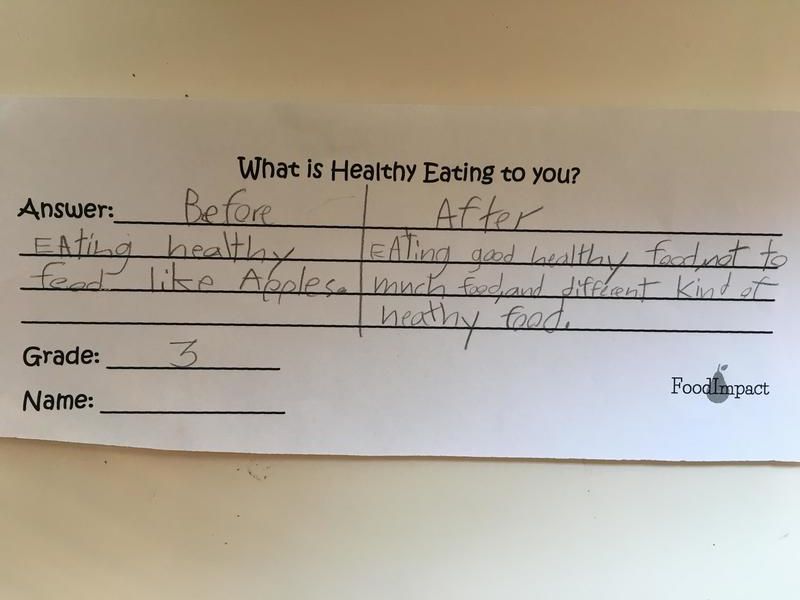 What is Healthy Eating to you?
Answer: Before After
EAting healthy EATing good healthy food, not to
food like Apples. much food, and different kind of
heathy food.
Grade: 3
Name:
FoodImpact